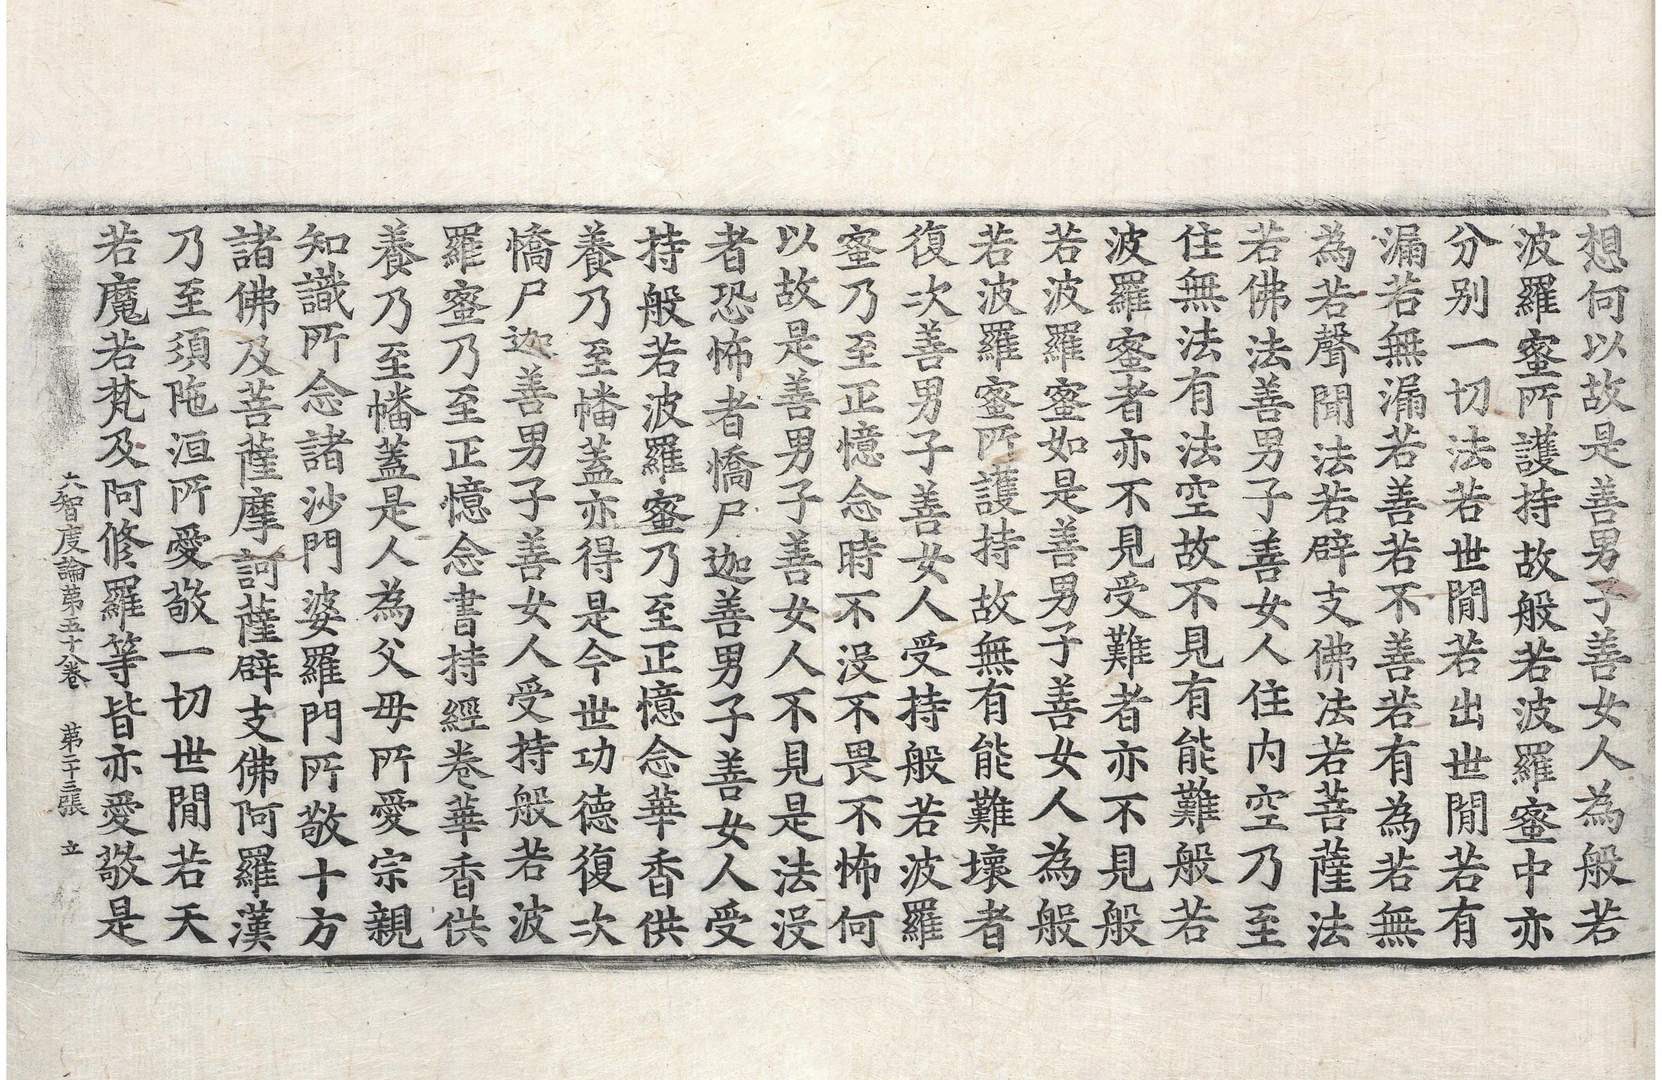 想何以故是善男子善女人為般若
波羅蜜所護持故般若波羅蜜中亦
分別一切法若世閒若出世閒若有
漏若無漏若善若不善若有為若無
為若聲聞法若辟支佛法若菩薩法
若佛法善男子善女人住内空乃至
住無法有法空故不見有能難般若
波羅蜜者亦不見受難者亦不見般
若波羅蜜如是善男子善女人為般
若波羅蜜所護持故無有能難壞者
復次善男子善女人受持般若波羅
蜜乃至正憶念時不没不畏不怖何
以故是善男子善女人不見是法没
者恐怖者憍尸迦善男子善女人受
持般若波羅蜜乃至正憶念華香供
養乃至幡蓋亦得是今世功德復次
憍尸迦善男子善女人受持般若波
羅蜜乃至正憶念書持經卷華香供
養乃至幡蓋是人為父母所愛宗親
知識所念諸沙門婆羅門所敬十方
諸佛及菩薩摩訶薩辟支佛阿羅漢
乃至須陁洹所愛敬一切世閒若天
若魔若梵及阿修羅等皆亦愛敬是
大智度論第五十八卷 第二十三張 立